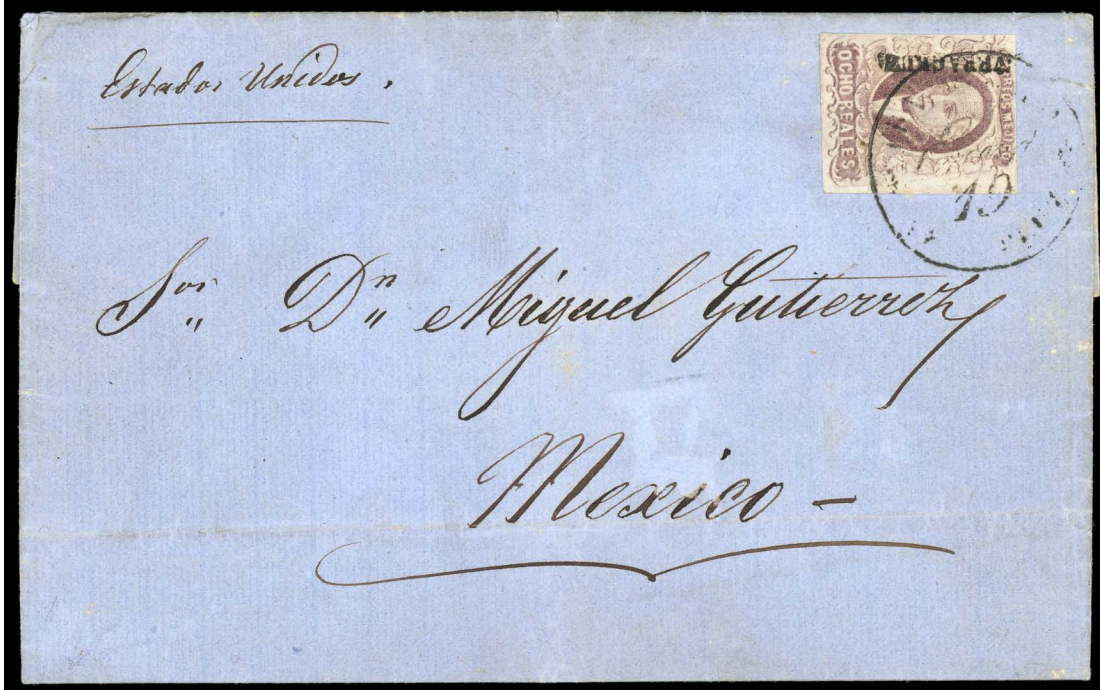 Estados Unidos.
CORREOS MEJICO
OCHO REALES
VERACRUZ
19
Sor. Dn. Miguel Gutierrez
Mexico -